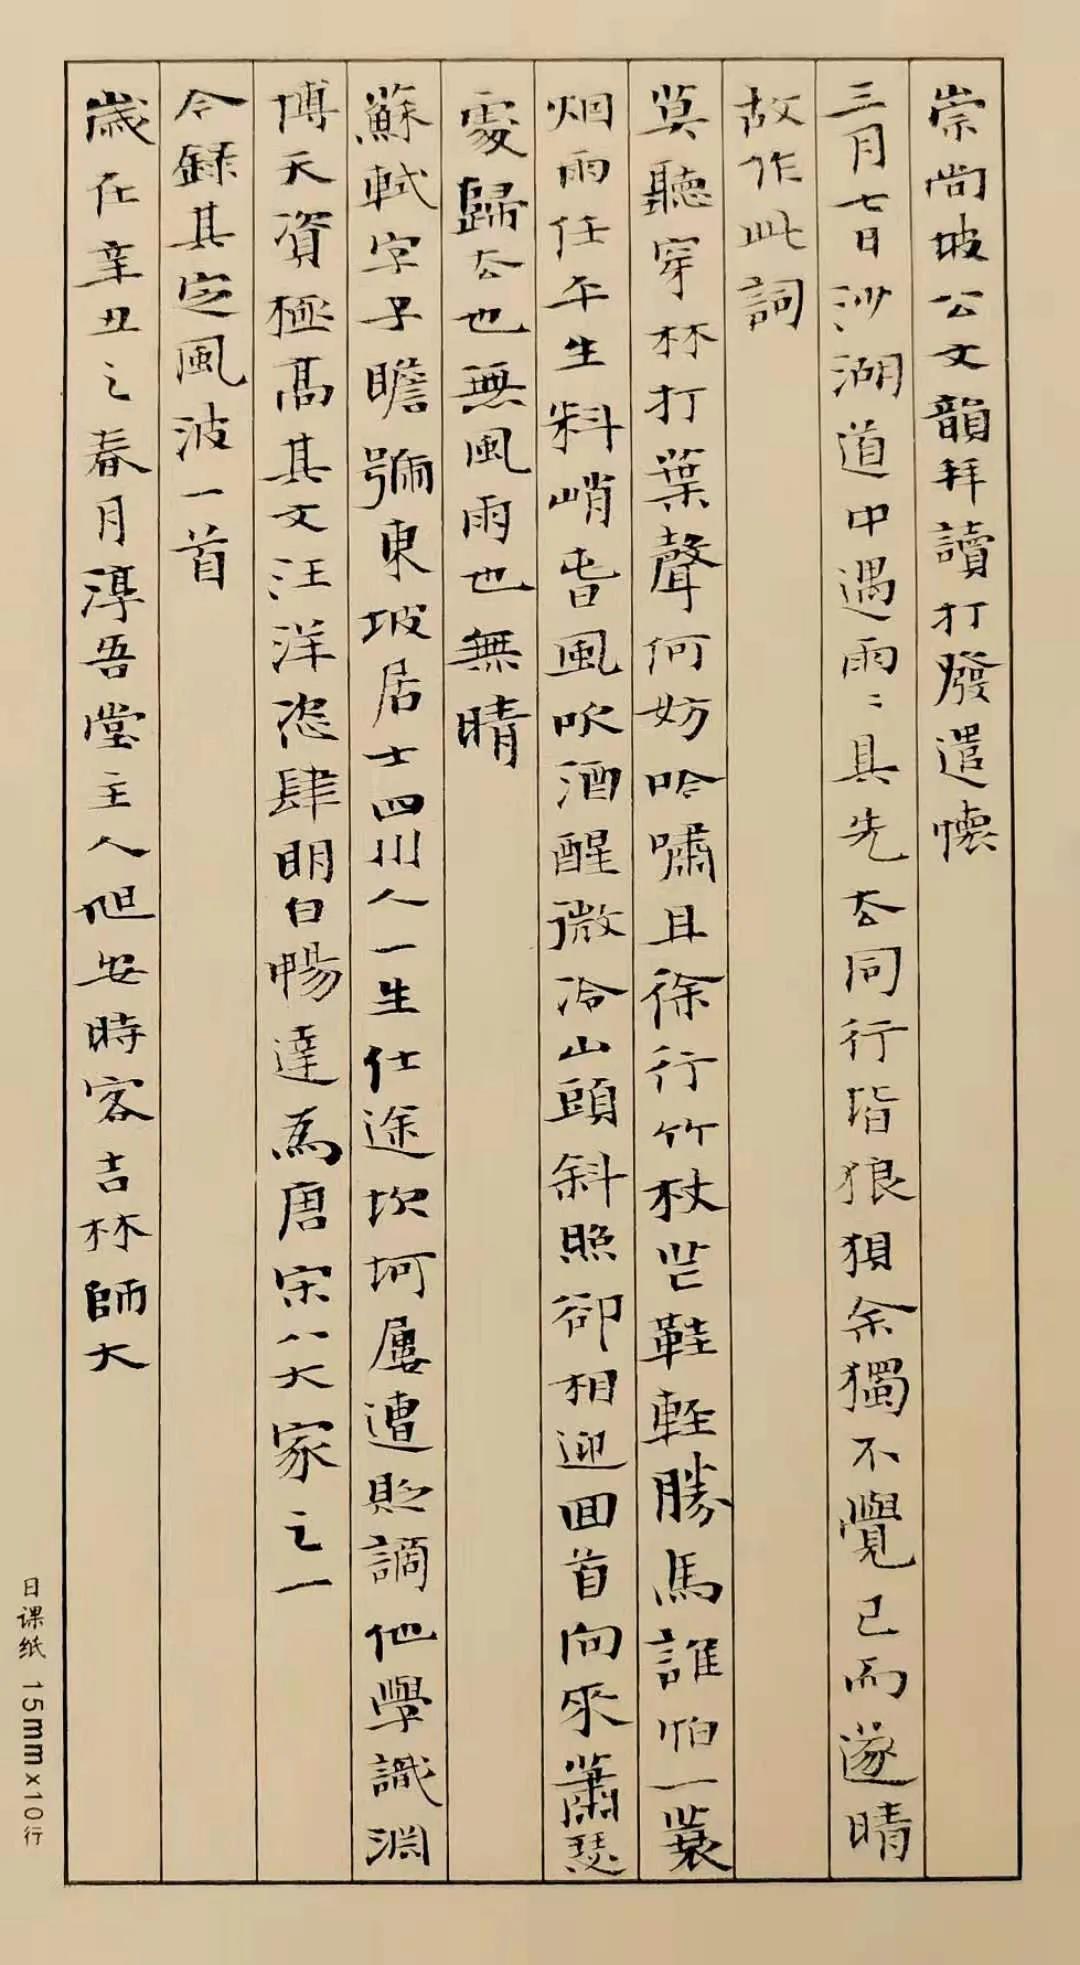 崇尚坡公文韻拜讀打發遣懷
三月七日沙湖道中遇雨雨具先去同行皆狼狽余獨不覺已而遂晴
故作此詞
莫聽穿林打葉聲何妨吟嘯且徐行竹杖芒鞋輕勝馬誰怕一蓑
烟雨任平生料峭春風吹酒醒微冷山頭斜照卻相迎回首向來蕭瑟
處歸去也無風雨也無晴
蘇軾字子瞻號東坡居士四川人一生仕途坎坷屢遭貶謫他學識淵
博天資極高其文汪洋恣肆明白暢達為唐宋八大家之一
今錄其定風波一首
歲在辛丑之春月淳吾堂主人旭安時客吉林師大
日课纸 15mm×10行